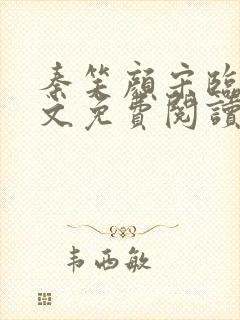 秦笑顔宋臨
文免費閱讀
韦西敏